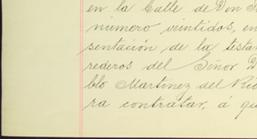 en la Calle de Don
número veintidos, en
sentación de la testa
rederos del Señor D
blo Martinez del Rio
ra contratar, á qu